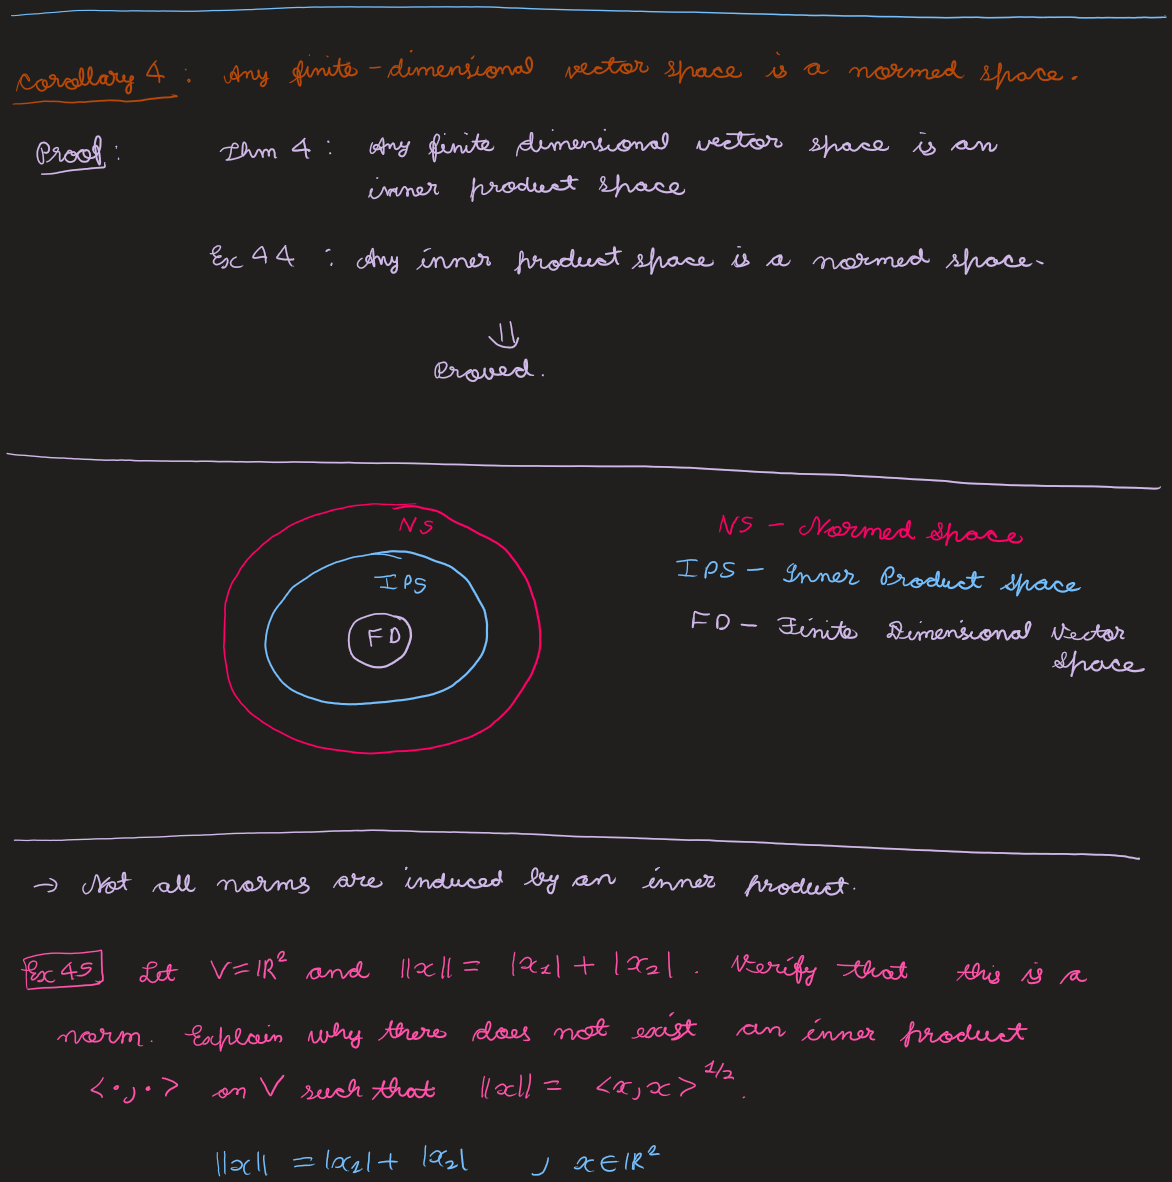 Corollary 4 : Any finite-dimensional vector space is a normed space.
Proof: Thm 4 : Any finite dimensional vector space is an
inner product space
Ex 44 : Any inner product space is a normed space.
⇓
Proved.
NS
IPS
FD
NS - Normed Space
IPS - Inner Product Space
FD - Finite Dimensional Vector
Space
→ Not all norms are induced by an inner product.
Ex 45 Let V=ℝ² and ||x|| = |x₁| + |x₂| . Verify that this is a
norm. Explain why there does not exist an inner product
<·,·> on V such that ||x|| = <x,x>^1/2.
||x|| = |x₁| + |x₂| , x∈ℝ²